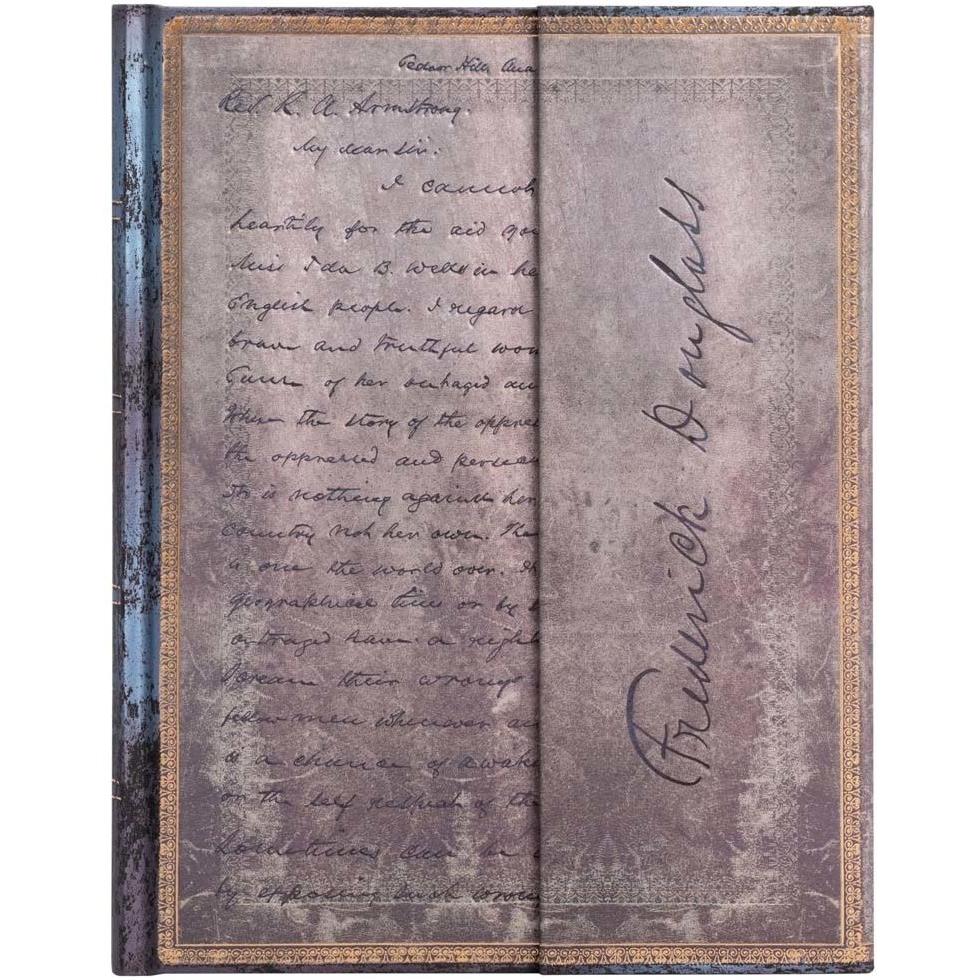 Cedar Hill, Ana
Rev. R. A. Armstrong.
My dear Sir:
I cannot
heartily for the aid you
Miss Ida B. Wells in he
English people. I regard
brave and truthful wom
Cause of her outraged an
the story of the oppres
the oppressed and persecu
It is nothing against her
country not her own. The
is one the world over. It
geographical lines or by
outraged have a right
their wrongs
fellow men wherever an
is a chance of awake
on the self respect of the
Sometimes can be
by exposing such wrong
Frederick Douglass